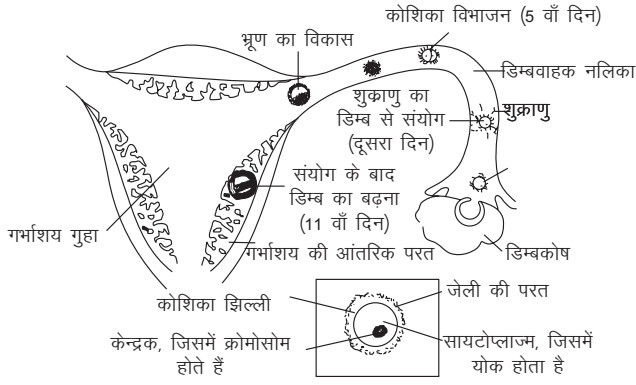 कोशिका विभाजन (5 वाँ दिन)
भ्रूण का विकास
डिम्बवाहक नलिका
शुक्राणु का
डिम्ब से संयोग
(दूसरा दिन)
शुक्राणु
संयोग के बाद
डिम्ब का बढ़ना
(11 वाँ दिन)
गर्भाशय गुहा
गर्भाशय की आंतरिक परत
डिम्बकोष
कोशिका झिल्ली
जेली की परत
केन्द्रक, जिसमें क्रोमोसोम
होते हैं
सायटोप्लाज्म, जिसमें
योक होता है